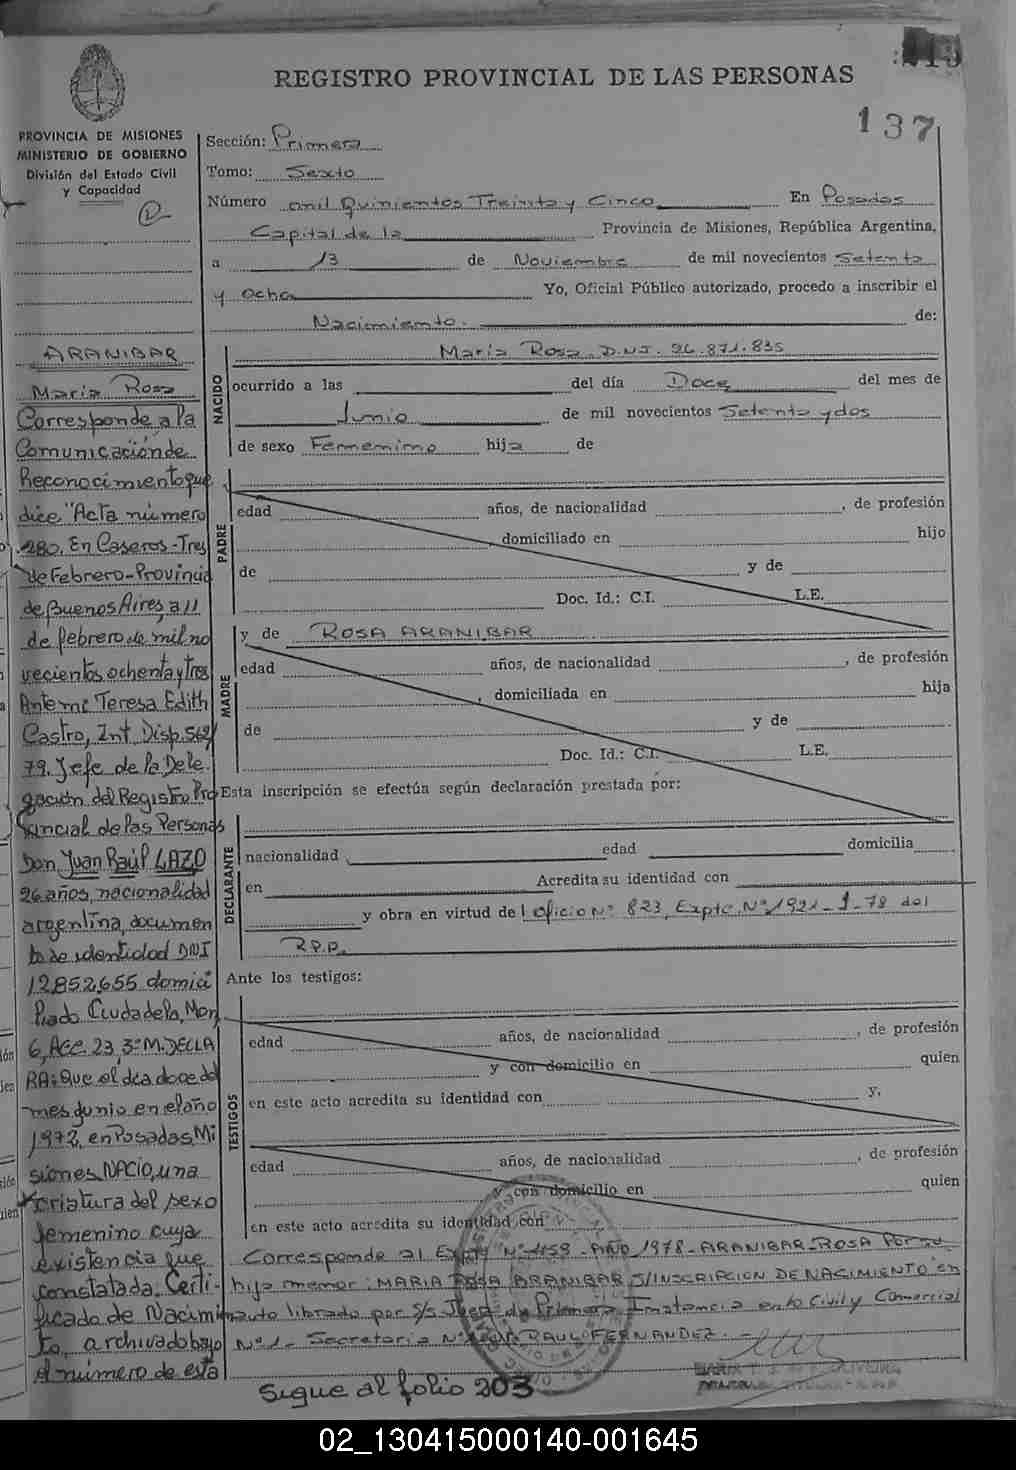 REGISTRO PROVINCIAL DE LAS PERSONAS
137
PROVINCIA DE MISIONES
MINISTERIO DE GOBIERNO
División del Estado Civil
y Capacidad
Sección: Primera
Tomo: Sexto
Número mil Quinientos Treinta y Cinco En Posadas
Capital de la Provincia de Misiones, República Argentina,
a 13 de Noviembre de mil novecientos Setenta
y Ocho Yo, Oficial Público autorizado, procedo a inscribir el
Nacimiento. de:
NACIDO
Maria Rosa D.N.I. 26.871.835
ocurrido a las del día Doce del mes de
Junio de mil novecientos Setenta y dos
de sexo Femenino hija de
PADRE
edad años, de nacionalidad , de profesión
domiciliado en hijo
de y de
Doc. Id.: C.I. L.E.
MADRE
y de ROSA ARANIBAR
edad años, de nacionalidad , de profesión
, domiciliada en hija
de y de
Doc. Id.: C.I. L.E.
Esta inscripción se efectúa según declaración prestada por:
DECLARANTE
nacionalidad edad domicilia
en Acredita su identidad con
y obra en virtud del Oficio Nº 823, Expte. Nº 1921-1-78 del
R.P.P.
Ante los testigos:
TESTIGOS
edad años, de nacionalidad , de profesión
y con domicilio en quien
en este acto acredita su identidad con y,
edad años, de nacionalidad , de profesión
y con domicilio en quien
en este acto acredita su identidad con
Corresponde al Expte Nº 1159 - AÑO 1978 - ARANIBAR ROSA Por su
hija menor: MARIA ROSA ARANIBAR S/INSCRIPCION DE NACIMIENTO en
librado por S/S Juez de Primera Instancia en lo Civil y Comercial
Nº 1 - Secretaria RAUL FERNANDEZ.
ARANIBAR
Maria Rosa
Corresponde a la
Comunicación de
Reconocimiento que
dice "Acta número
280. En Caseros-Tres
de Febrero-Provincia
de Buenos Aires, a 11
de febrero de mil no
vecientos ochenta y tres
Ante mi Teresa Edith
Castro, Int Disp. 562/
79. Jefe de la Dele
gación del Registro Pro
vincial de las Personas
Don Juan Raúl LAZO
26 años, nacionalidad
argentina, documen
to de identidad DNI
12.852.655 domici
liado Ciudadela, Mon
6, Acc. 23, 3º M. DECLA
RA: Que el día doce del
mes junio en el año
1972, en Posadas, Mi
siones NACIO, una
criatura del sexo
femenino cuya
existencia fue
constatada. Certi-
ficado de Nacimien
to, archivado bajo
el número de esta
Sigue al folio 203
02_130415000140-001645